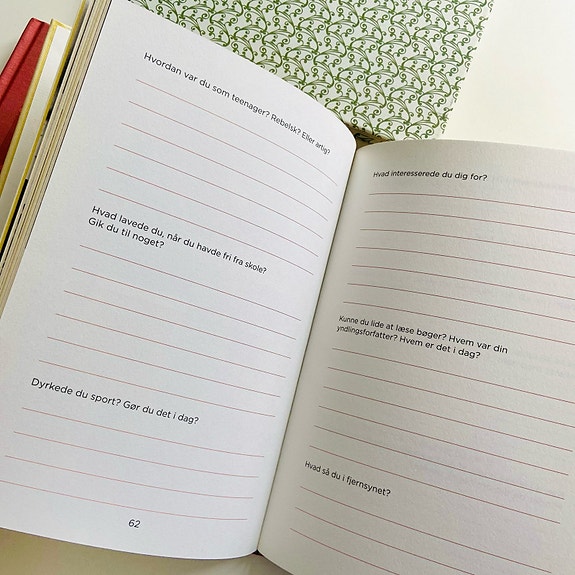 Hvordan var du som teenager? Rebelsk? Eller artig?
Hvad lavede du, når du havde fri fra skole?
Gik du til noget?
Dyrkede du sport? Gør du det i dag?
62
Hvad interesserede du dig for?
Kunne du lide at læse bøger? Hvem var din
yndlingsforfatter? Hvem er det i dag?
Hvad så du i fjernsynet?